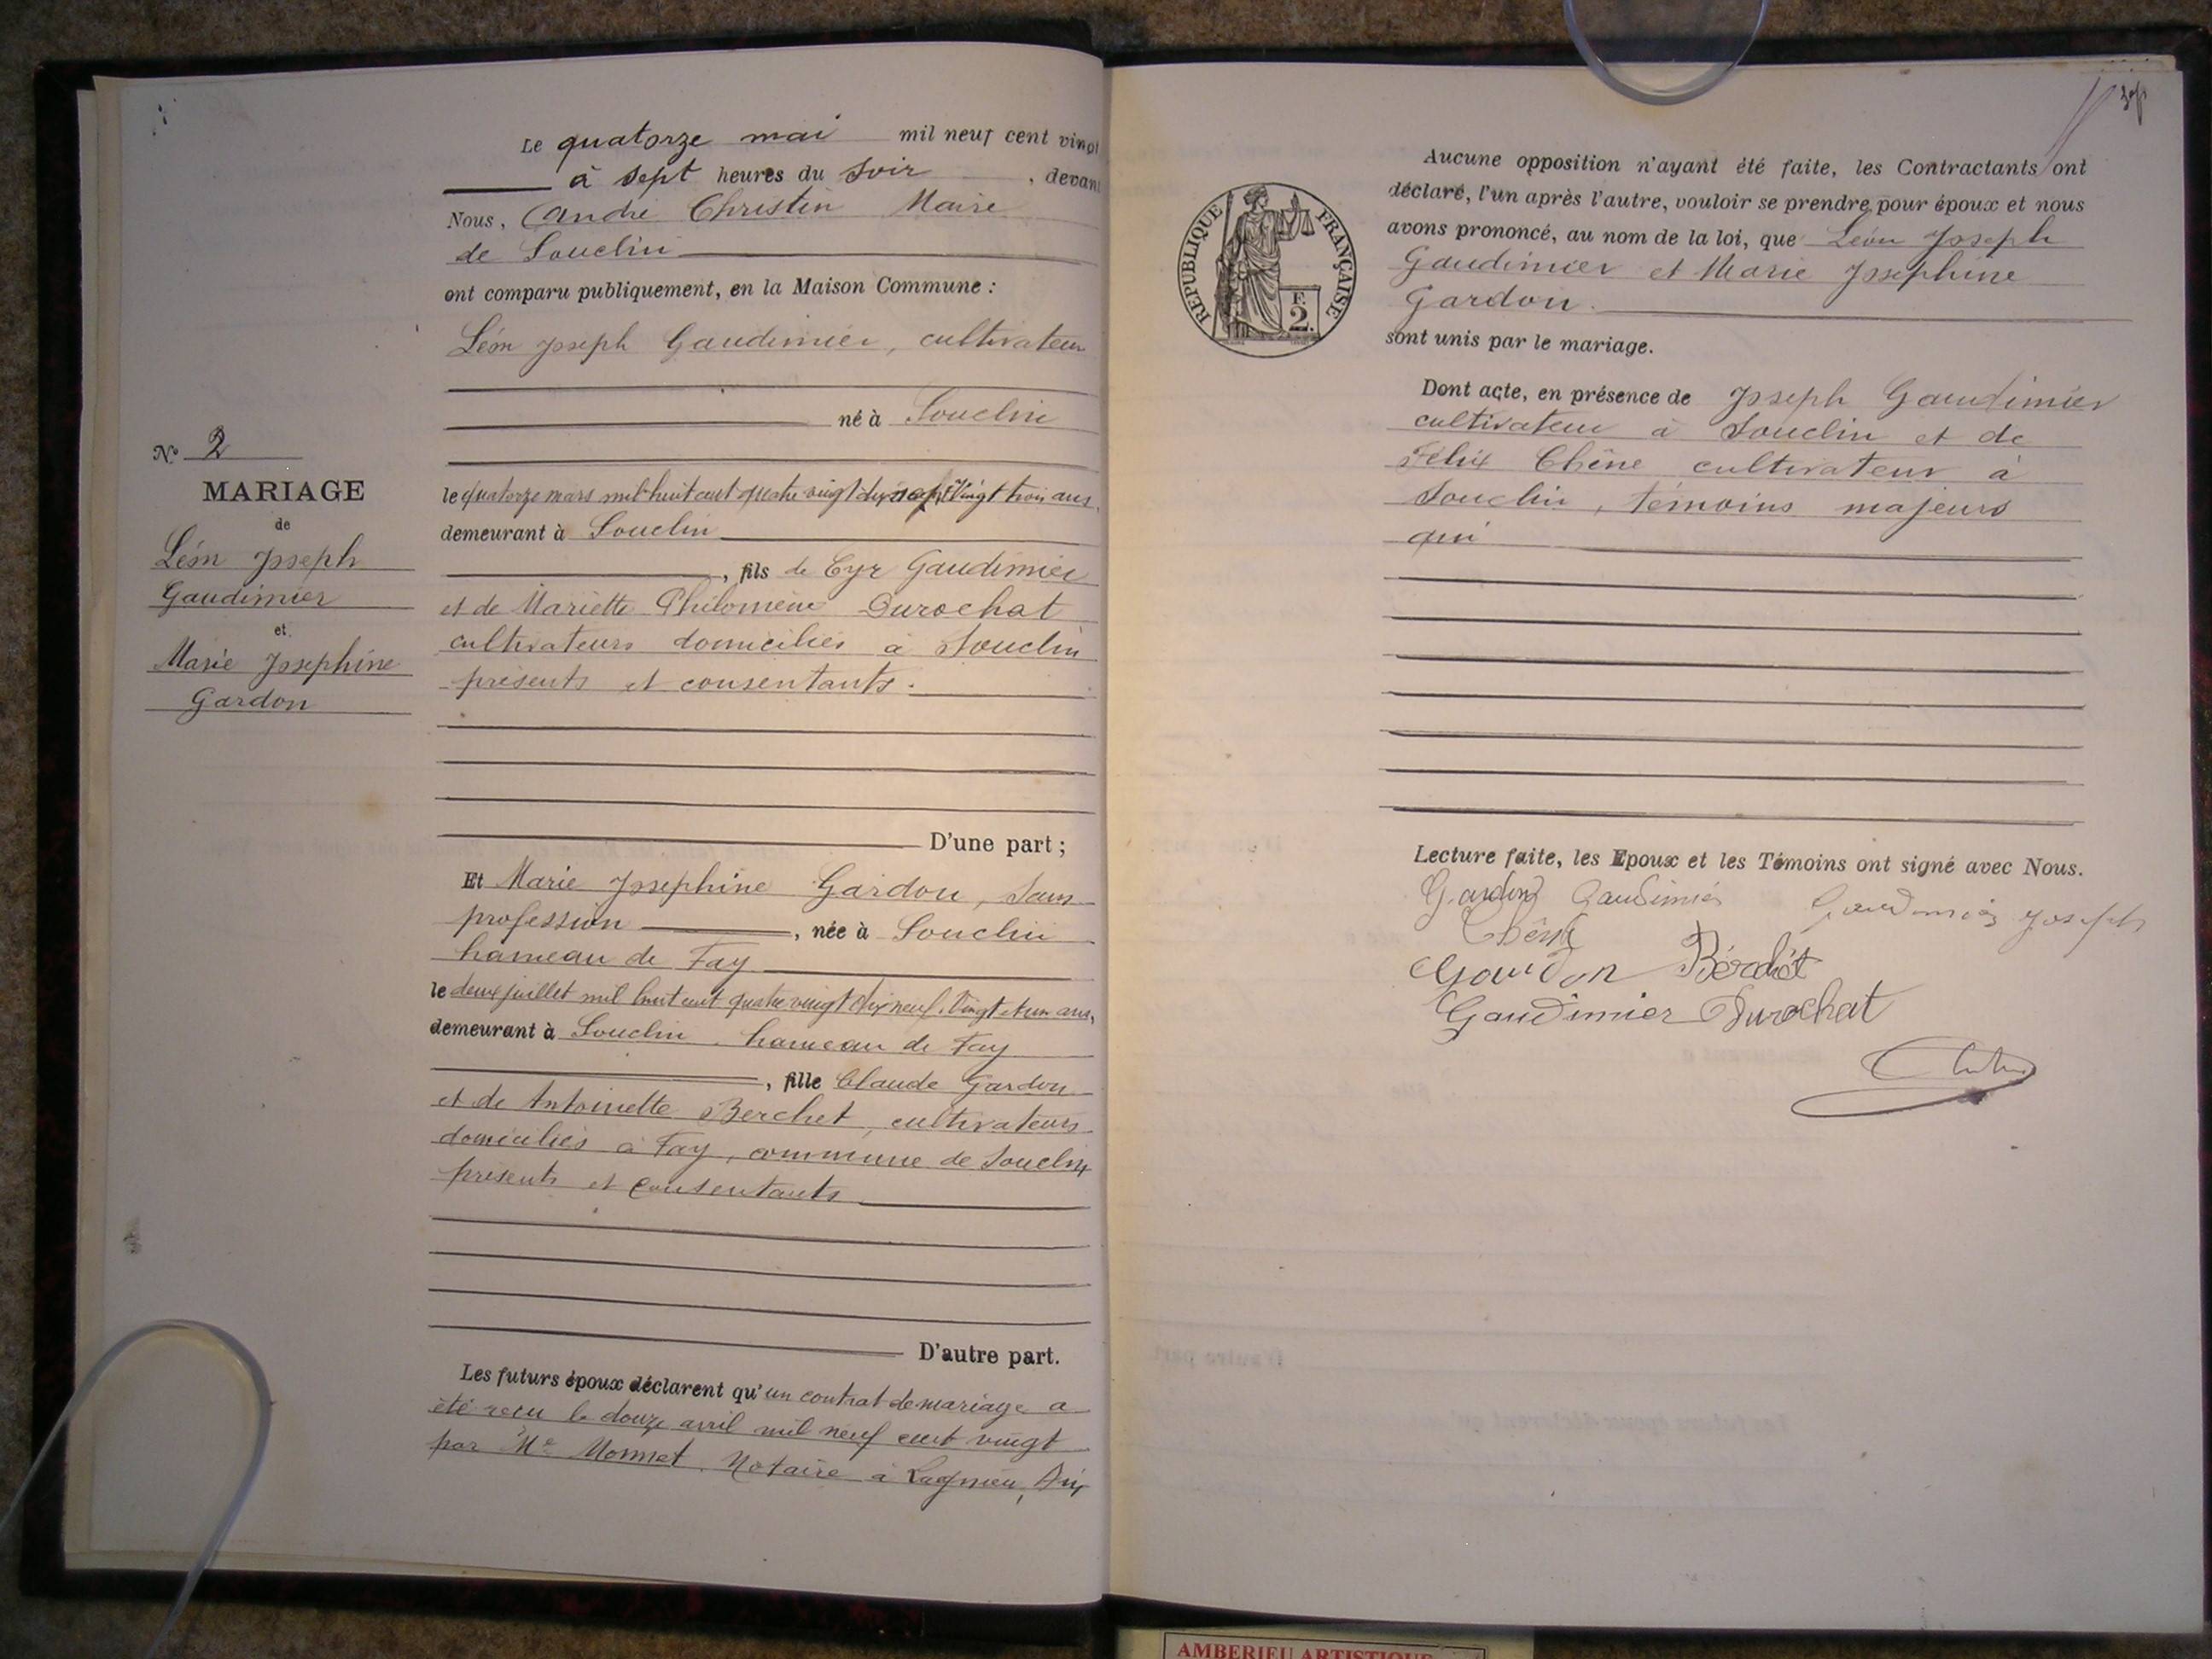 Le quatorze mai mil neuf cent vingt
à sept heures du soir, devant
Nous, André Christin Maire
de Souclin
ont comparu publiquement, en la Maison Commune :
Léon Joseph Gaudimier, cultivateur
né à Souclin
le quatorze mars mil huit cent quatre vingt dix sept Vingt trois ans,
demeurant à Souclin
, fils de Cyr Gaudimier
et de Mariette Philomène Durochat
cultivateurs domiciliés à Souclin
présents et consentants.
D'une part ;
N° 2
MARIAGE
de
Léon Joseph
Gaudimier
et
Marie Josephine
Gardon
Et Marie Josephine Gardon, sans
profession, née à Souclin
hameau de Fay
le deux juillet mil huit cent quatre vingt dix neuf. Vingt et un ans,
demeurant à Souclin hameau de Fay
, fille Claude Gardon
et de Antoinette Berchet, cultivateurs
domiciliés à Fay, commune de Souclin
présents et consentants
D'autre part.
Les futurs époux déclarent qu'un contrat de mariage a
été reçu le douze avril mil neuf cent vingt
par Me Monnet, Notaire à Lagnieu, Ain
RÉPUBLIQUE FRANÇAISE
F.
2.
Aucune opposition n'ayant été faite, les Contractants ont
déclaré, l'un après l'autre, vouloir se prendre pour époux et nous
avons prononcé, au nom de la loi, que Léon Joseph
Gaudimier et Marie Josephine
Gardon.
sont unis par le mariage.
Dont acte, en présence de Joseph Gaudimier
cultivateur à Souclin et de
Félix Chêne cultivateur à
Souclin, témoins majeurs
qui
Lecture faite, les Epoux et les Témoins ont signé avec Nous.
Gardon Gaudimier Gaudimier Joseph
Chêne
Gardon Bérchet
Gaudimier Durochat
AMBERIEU ARTISTIQUE